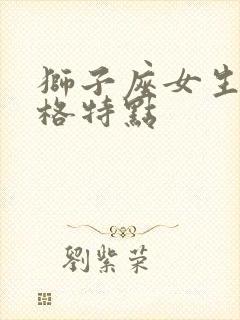 獅子座女生
格特點
劉紫荣